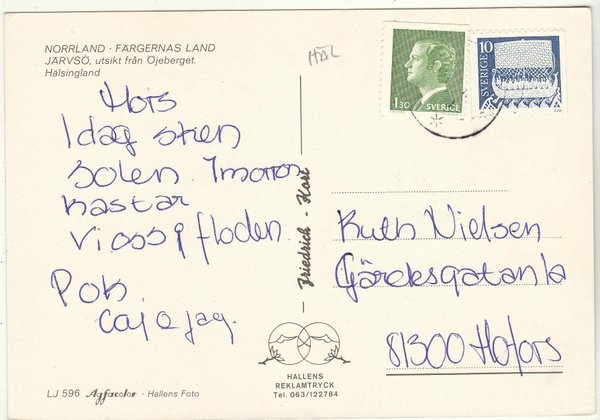 NORRLAND - FÄRGERNAS LAND
JÄRVSÖ, utsikt från Öjeberget.
Hälsingland
HÄL
Hojs
Idag sken
solen. Imorron
kastar
vi oss i floden.
Pok
Caj o jag.
Friedrich - Kort
1.30 SVERIGE
10
SVERIGE
Ruth Nielsen
Gärdesgatan 1a
81300 Hofors
HALLENS
REKLAMTRYCK
Tel. 063/122784
LJ 596 Agfacolor - Hallens Foto